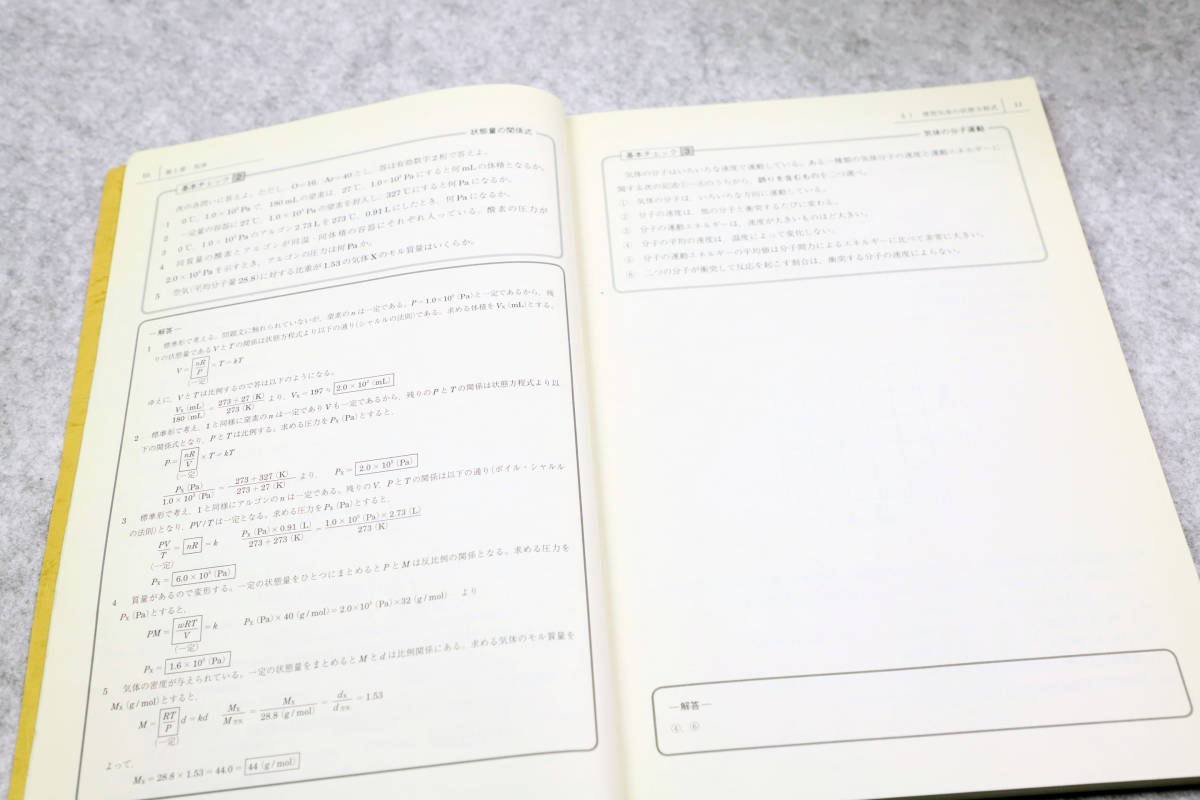 10 第1章 気体
状態量の関係式
基本チェック 2
次の各問いに答えよ。ただし，O=16，Ar=40とし，答は有効数字2桁で答えよ。
1 0℃，1.0×10⁵Paで，180mLの窒素は，27℃，1.0×10⁵Paにすると何mLの体積となるか。
2 一定量の容器に27℃，1.0×10⁵Paの窒素を封入し，327℃にすると何Paになるか。
3 0℃，1.0×10⁵Paのアルゴン2.73Lを273℃，0.91Lにしたとき，何Paになるか。
4 同質量の酸素とアルゴンが同温・同体積の容器にそれぞれ入っている。酸素の圧力が
2.0×10⁵Paを示すとき，アルゴンの圧力は何Paか。
5 空気(平均分子量28.8)に対する比重が1.53の気体Xのモル質量はいくらか。
―解答―
1 標準形で考える。問題文に触れられていないが，窒素のnは一定である。P=1.0×10⁵(Pa)と一定であるから，残
りの状態量であるVとTの関係は状態方程式より以下の通り(シャルルの法則)である。求める体積をVx(mL)とする。
V= nR/P ×T=kT
(一定)
ゆえに，VとTは比例するので答は以下のようになる。
Vx(mL)/180(mL) = 273+27(K)/273(K) より，Vx=197≒ 2.0×10²(mL)
2 標準形で考え，1と同様に窒素のnは一定でありVも一定であるから，残りのPとTの関係は状態方程式より以
下の関係式となり，PとTは比例する。求める圧力をPx(Pa)とすると，
P= nR/V ×T=kT
(一定)
Px(Pa)/1.0×10⁵(Pa) = 273+327(K)/273+27(K) より， Px= 2.0×10⁵(Pa)
3 標準形で考え，1と同様にアルゴンのnは一定である。残りのV，PとTの関係は以下の通り(ボイル・シャルル
の法則)となり，PV/Tは一定となる。求める圧力をPx(Pa)とすると，
PV/T = nR =k Px(Pa)×0.91(L)/273+273(K) = 1.0×10⁵(Pa)×2.73(L)/273(K)
(一定)
Px= 6.0×10⁵(Pa)
4 質量があるので変形する。一定の状態量をひとつにまとめるとPとMは反比例の関係となる。求める圧力を
Px(Pa)とすると，
PM= wRT/V =k Px(Pa)×40(g/mol)=2.0×10⁵(Pa)×32(g/mol) より
(一定)
Px= 1.6×10⁵(Pa)
5 気体の密度が与えられている。一定の状態量をまとめるとMとdは比例関係にある。求める気体のモル質量を
Mx(g/mol)とすると，
M= RT/P d=kd Mx/M空気 = Mx/28.8(g/mol) = dx/d空気 =1.53
(一定)
よって，
Mx=28.8×1.53=44.0= 44(g/mol)
§1 理想気体の状態方程式 11
気体の分子運動
基本チェック 3
気体の分子はいろいろな速度で運動している。ある一種類の気体分子の速度と運動エネルギーに
関する次の記述①～⑥のうちから，誤りを含むものを二つ選べ。
① 気体の分子は，いろいろな方向に運動している。
② 分子の速度は，他の分子と衝突するたびに変わる。
③ 分子の運動エネルギーは，速度が大きいものほど大きい。
④ 分子の平均の速度は，温度によって変化しない。
⑤ 分子の運動エネルギーの平均値は分子間力によるエネルギーに比べて非常に大きい。
⑥ 二つの分子が衝突して反応を起こす割合は，衝突する分子の速度によらない。
―解答―
④，⑥